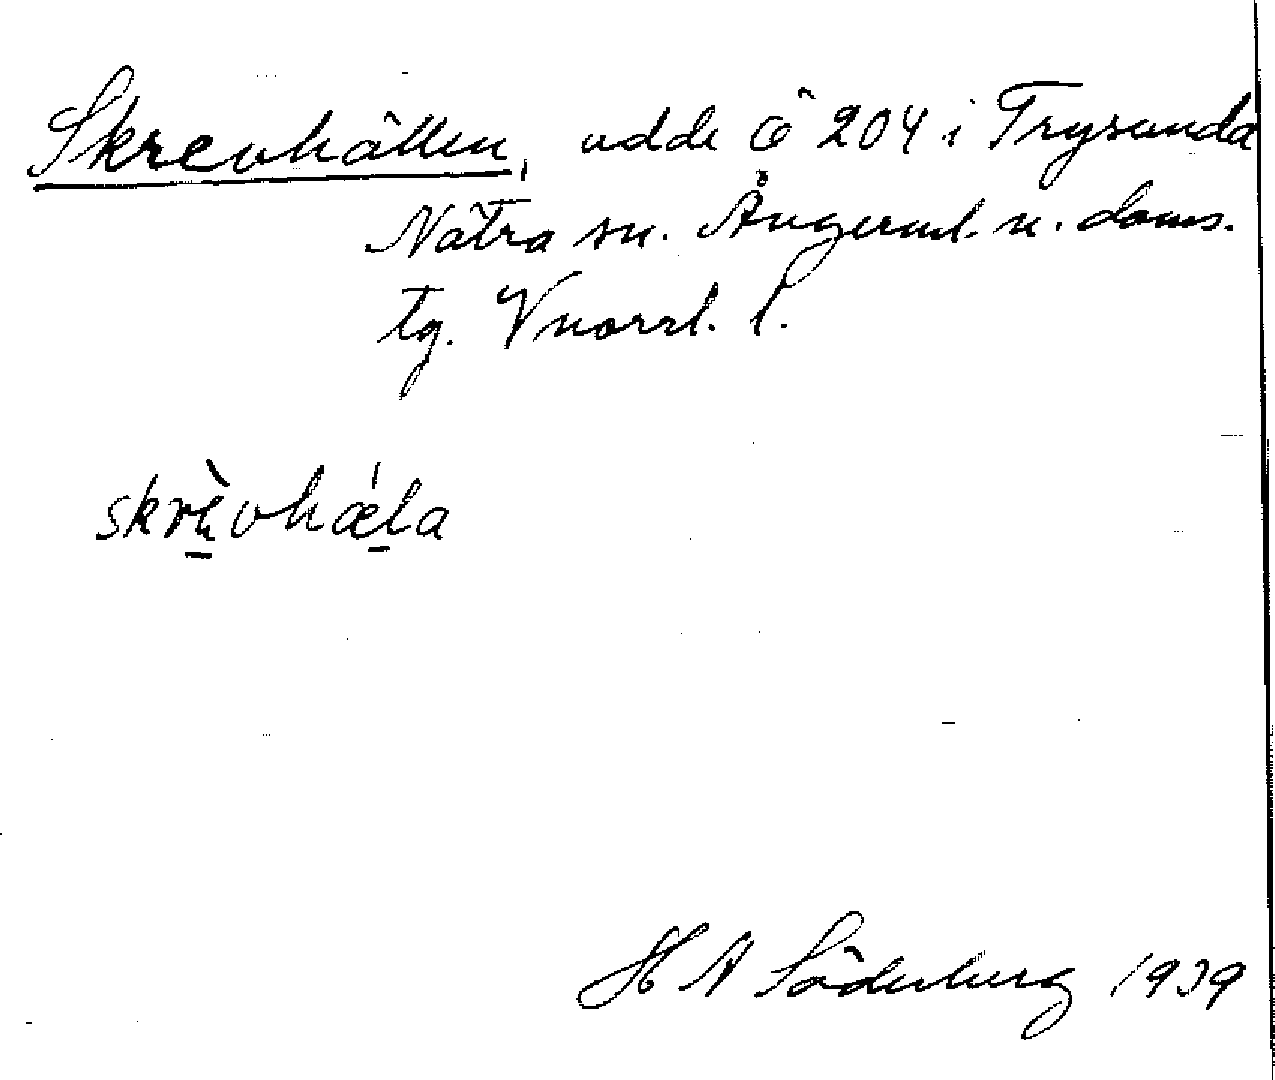 Skrevhällen, udde ö 204 i Trysunda
Nätra sn. Ångerml. n. doms.
tg. Vnorrl. l.
skrèvhǽla
H A Söderberg 1939